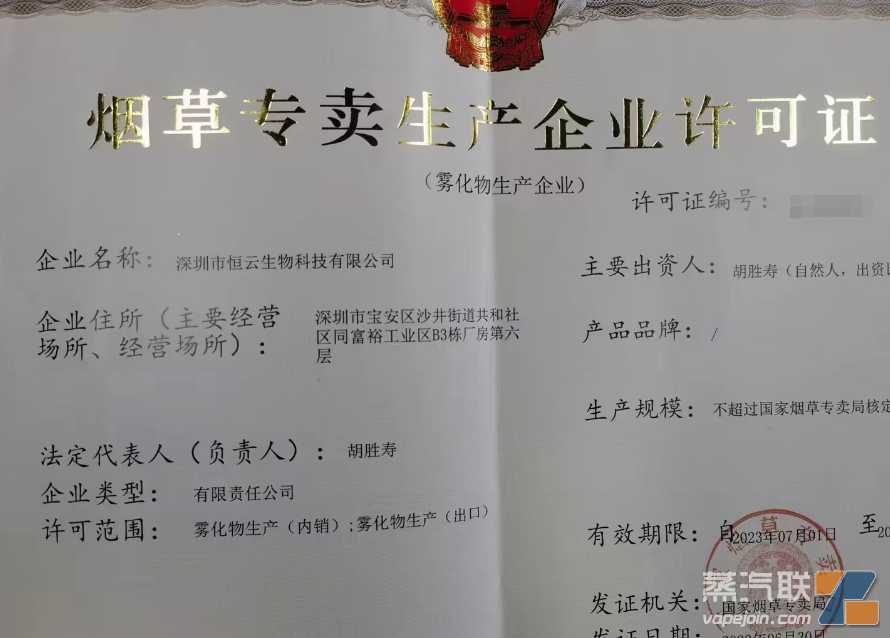 烟草专卖生产企业许可证
（雾化物生产企业）
许可证编号：
企业名称： 深圳市恒云生物科技有限公司
主要出资人： 胡胜寿（自然人，出资
企业住所（主要经营
场所、经营场所）：
深圳市宝安区沙井街道共和社
区同富裕工业区B3栋厂房第六
层
产品品牌： /
生产规模： 不超过国家烟草专卖局核定
法定代表人（负责人）： 胡胜寿
企业类型： 有限责任公司
许可范围： 雾化物生产（内销）;雾化物生产（出口）
有效期限： 自2023年07月01日 至20
发证机关： 国家烟草专卖局
发证日期： 2023年06月30日
蒸汽联
vapejoin.com